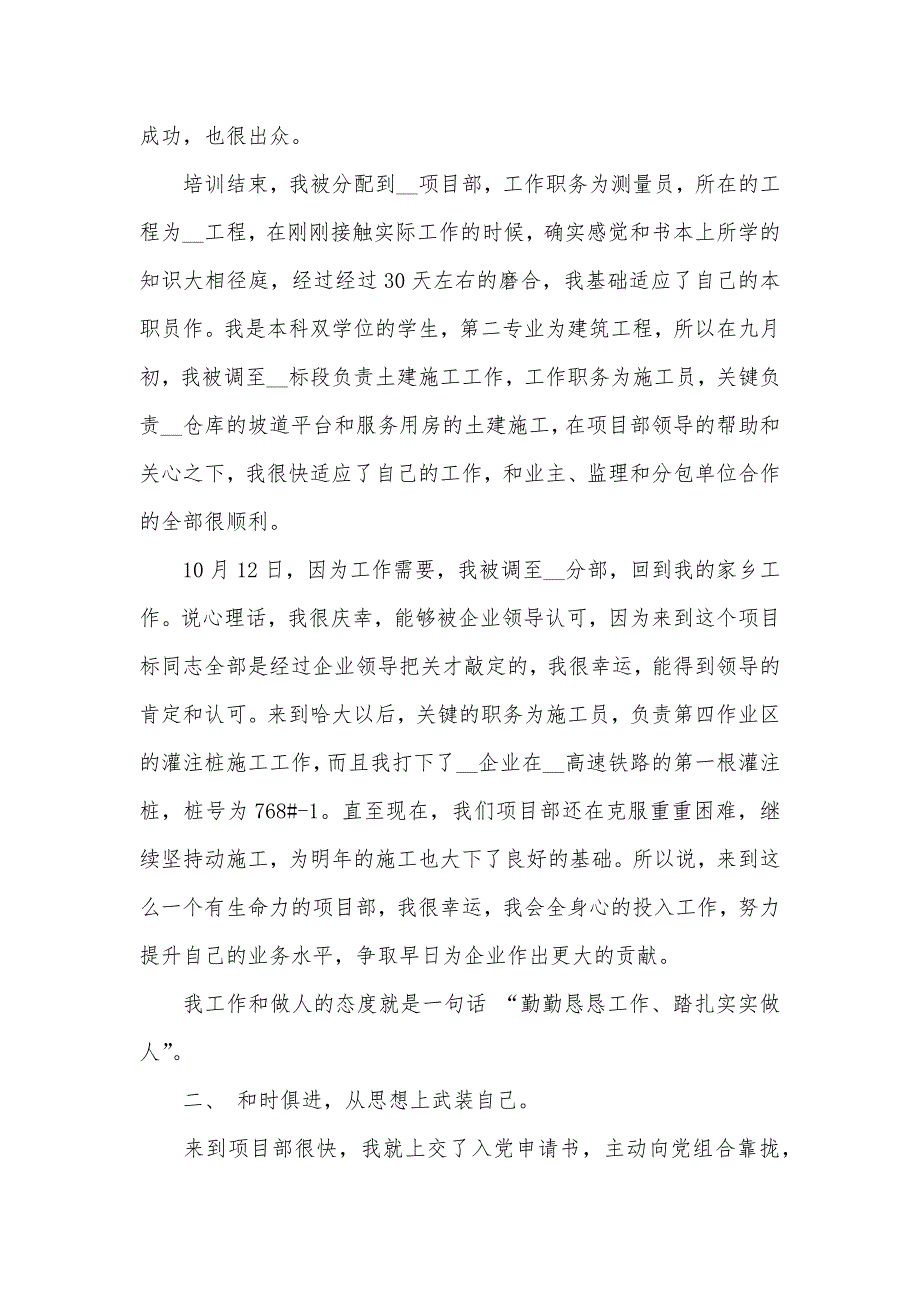 成功，也很出众。
培训结束，我被分配到__项目部，工作职务为测量员，所在的工
程为__工程，在刚刚接触实际工作的时候，确实感觉和书本上所学的
知识大相径庭，经过经过 30 天左右的磨合，我基础适应了自己的本
职员作。我是本科双学位的学生，第二专业为建筑工程，所以在九月
初，我被调至__标段负责土建施工工作，工作职务为施工员，关键负
责__仓库的坡道平台和服务用房的土建施工，在项目部领导的帮助和
关心之下，我很快适应了自己的工作，和业主、监理和分包单位合作
的全部很顺利。
10 月 12 日，因为工作需要，我被调至__分部，回到我的家乡工
作。说心理话，我很庆幸，能够被企业领导认可，因为来到这个项目
标同志全部是经过企业领导把关才敲定的，我很幸运，能得到领导的
肯定和认可。来到哈大以后，关键的职务为施工员，负责第四作业区
的灌注桩施工工作，而且我打下了__企业在__高速铁路的第一根灌注
桩，桩号为 768#-1。直至现在，我们项目部还在克服重重困难，继
续坚持动施工，为明年的施工也大下了良好的基础。所以说，来到这
么一个有生命力的项目部，我很幸运，我会全身心的投入工作，努力
提升自己的业务水平，争取早日为企业作出更大的贡献。
我工作和做人的态度就是一句话 “勤勤恳恳工作、踏扎实实做
人”。
二、 和时俱进，从思想上武装自己。
来到项目部很快，我就上交了入党申请书，主动向党组合靠拢，